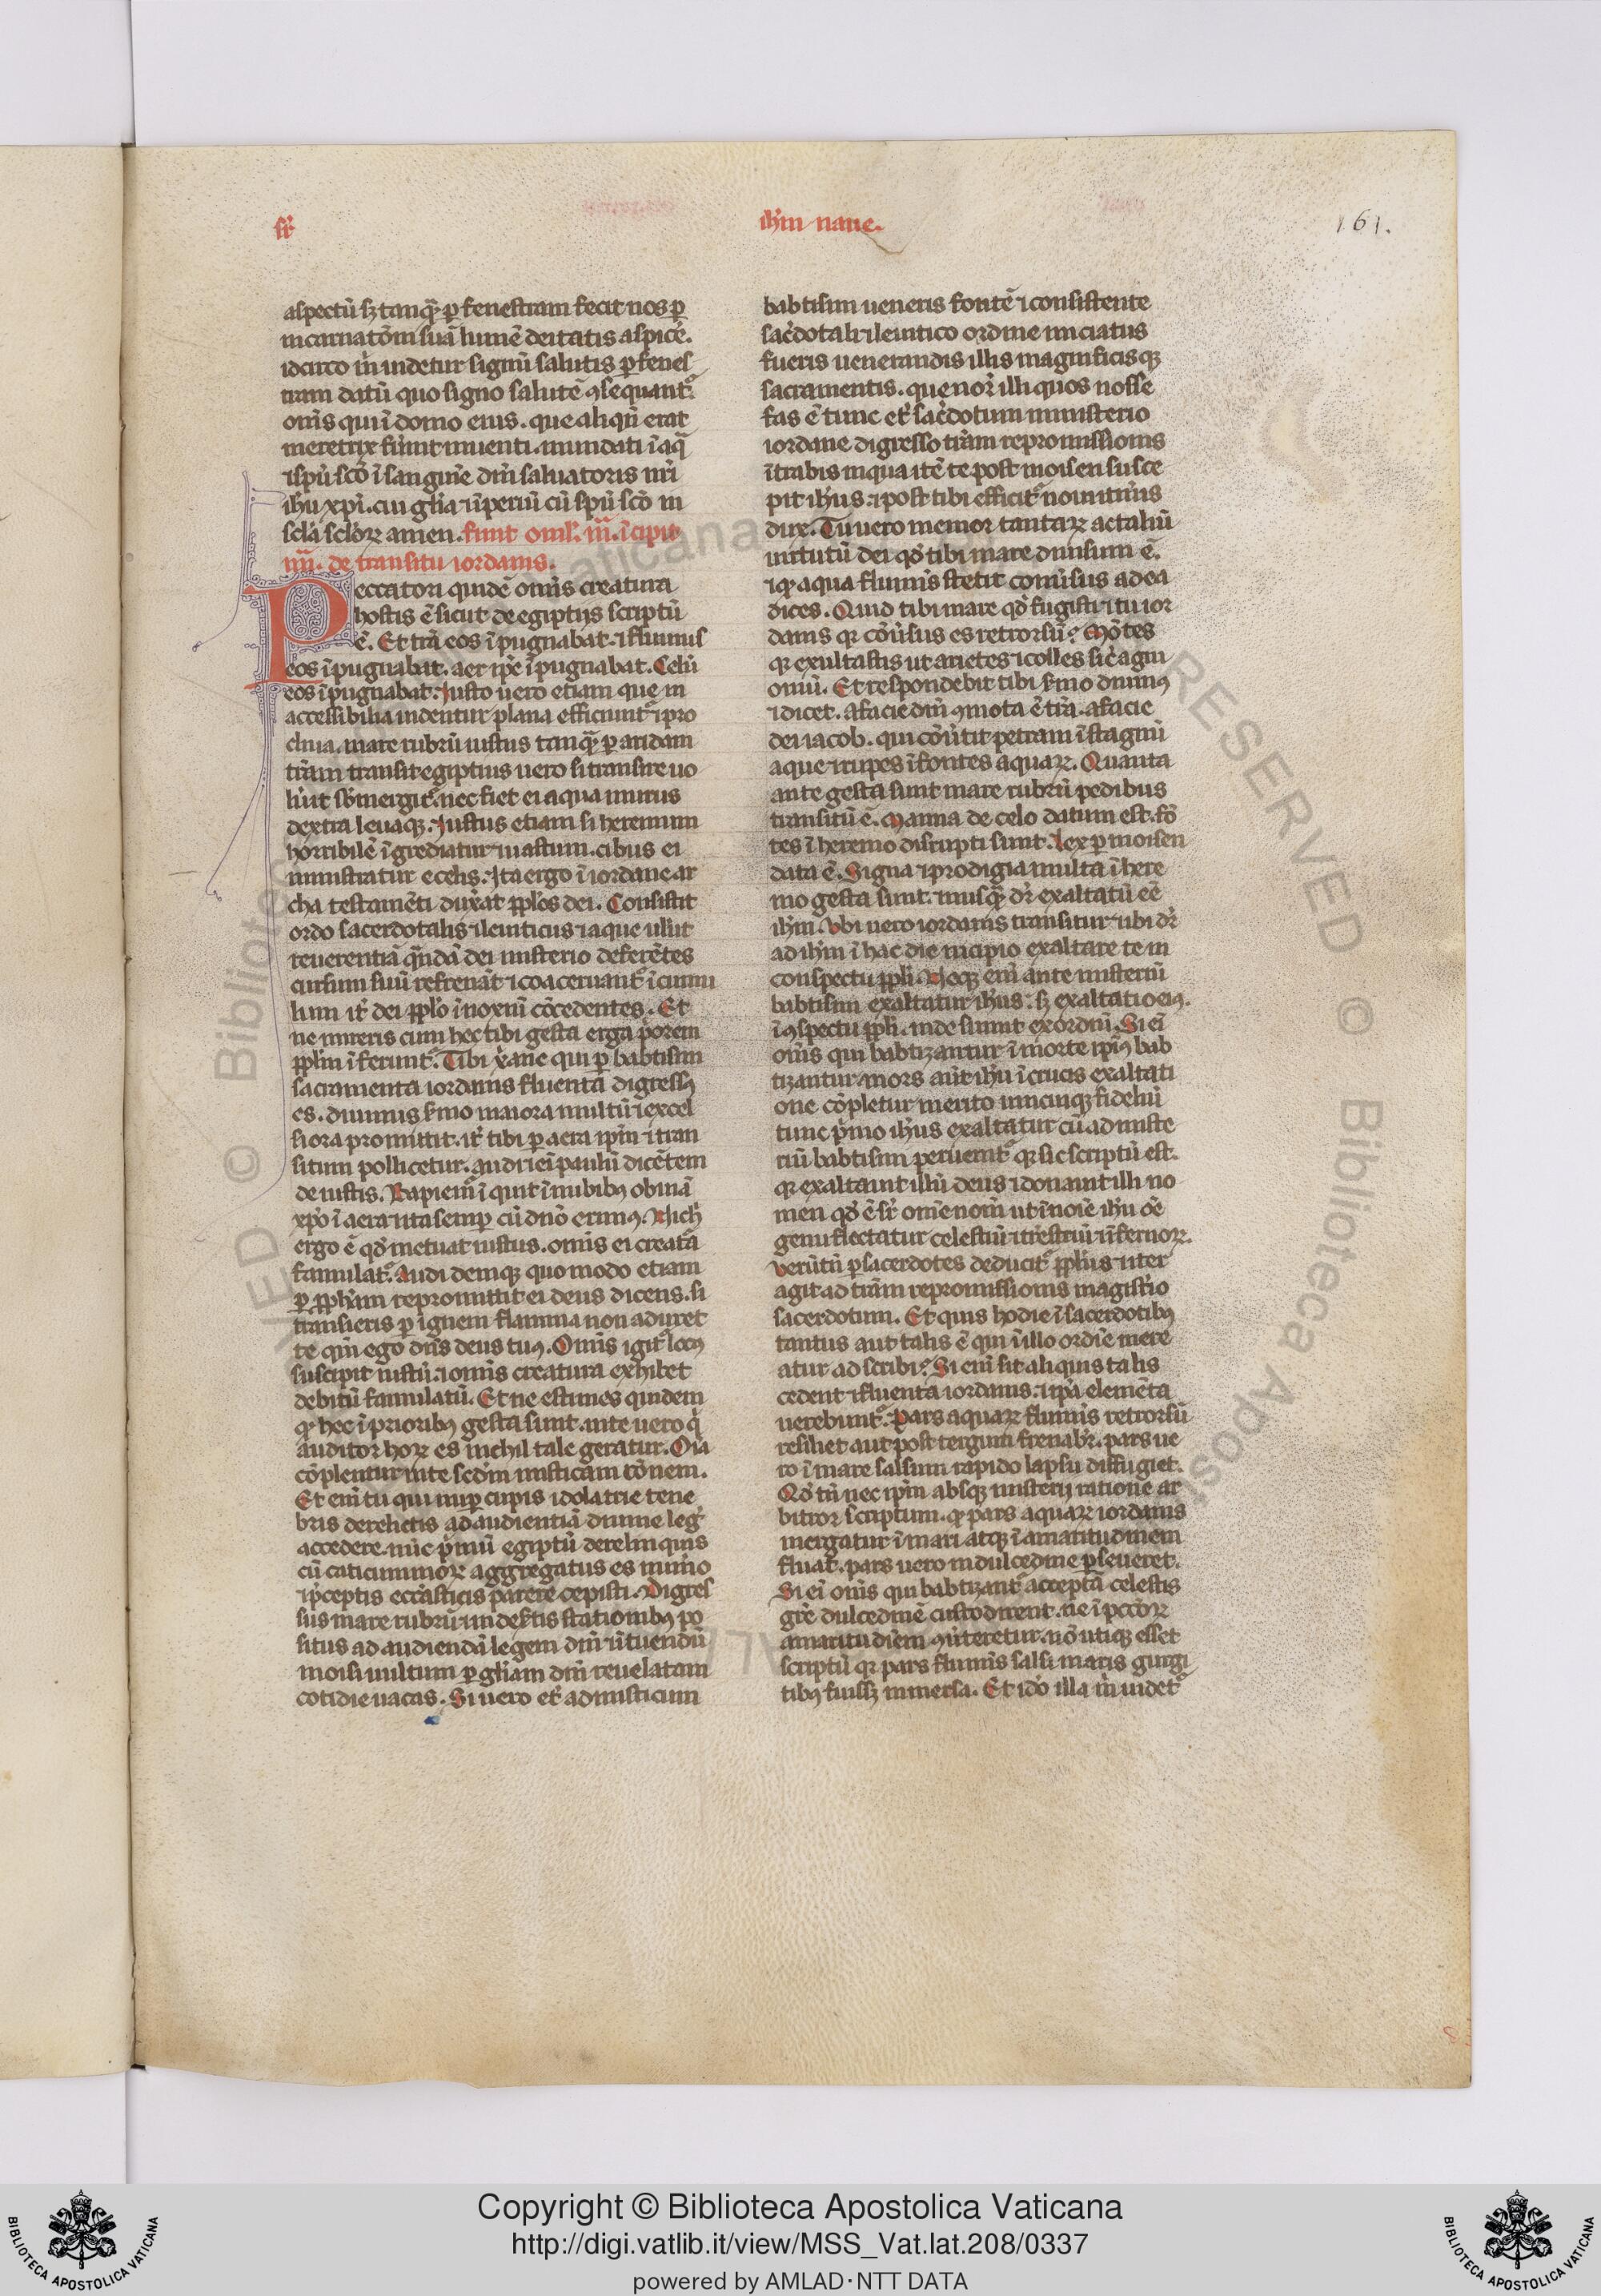 sr̄
ihm naue.
161.
aspectū sꝫ tanqͣ ꝑ fenestram fecit nos ꝑ
incarnatōm suā lumē deitatis aspicē.
idcirco m̄ uidetur signū salutis ꝑ fenes
tram datū quo signo salutē ꝯsequantᷣ
om̄s qui ī domo eius. que aliqn̄ erat
meretrix fūint inuenti. mundati ī aq̄
⁊ spū scō ī sanguīe dn̄i saluatoris nr̄i
ihū xp̄i. cui gl̄ia ⁊ īperiū cū spū scō in
scl̄a scl̄oꝝ amen. finit oml̄. iij. īcipit
iiij. de transitu iordanis.
Peccatori quidē om̄is creatura
hostis ē sicut de egiptijs scriptū
ē. Et tr̄a eos īpugnabat. ⁊ fluuius
eos īpugnabat. aer ip̄e īpugnabat. Celū
eos īpugnabat. Iusto uero etiam que in
accessibilia uidentur plana efficiuntᷣ ⁊ pro
cliuia. mare rubrū iustus tanqͣ ꝑ aridam
tr̄am transit egiptius uero si transire uo
lūit sb̄mergitᷣ. nec fiet ei aqua murus
dextra leuaqꝫ. Iustus etiam si heremum
horribilē īgrediatur ⁊ uastum. cibus ei
ministratur e celis. Ita ergo ī iordane ar
cha testamēti dux̄at ppl̄os dei. Consistit
ordo sacerdotalis ⁊ leuiticus ⁊ aque ulut
reuerentiā qn̄dā dei misterio deferētes
cursum suū refrenāt ⁊ coaceruantᷣ ī cumu
lum itᷣ dei ppl̄o īnoxiū cōcedentes. Et
ne mireris cum hec tibi gesta erga p̄orem
ppl̄m īferuntᷣ. Tibi x̄ane qui ꝑ babtismi
sacramenta iordanis fluenta digressꝰ
es. diuinus s̄mo maiora multū ⁊ excel
siora promittit. itᷣ tibi ꝑ aera ip̄m ⁊ tran
situm pollicetur. audi eī paulū dicētem
de iustis. Rapiemᷣ īquit ī nubibꝰ obuiā
xp̄o ī aera ⁊ ita semꝑ cū dn̄o erimꝰ. Nich̄
ergo ē qd̄ metuat iustus. om̄is ei creat̄a
famulatᷣ. Audi deniqꝫ quo modo etiam
ꝑ pph̄am repromittit ei deus dicens. si
transieris ꝑ ignem flamma non aduret
te qm̄ ego dn̄s deus tuꝰ. Om̄is igitᷣ locꝰ
suscipit iustū. ⁊ om̄is creatura exhibet
debitū famulatū. Et ne estimes quidem
qͦ hec ī prioribꝰ gesta sunt. in te uero qͥ
auditor hoꝝ es nichil tale geratur. Oīa
cōplentur in te secd̄m misticam rōnem.
Et eni tu qui nuꝑ cupis idolatrie tene
bris derelictis ad audientiā diuine leḡ
accedere. nūc p̄mū egiptū derelinquis
cū caticuminoꝝ aggregatus es nuḿo
⁊ p̄ceptis eccl̄asticis parere cepisti. Digres
sus mare rubrū ⁊ in desertis stationibꝰ po
situs ad audiendū legem dn̄i ⁊ ītuendū
moisi uultum ꝑ gl̄iam dn̄i reuelatam
cotidie uacas. Si uero etᷣ ad misticum
babtismi ueneris fontē ⁊ consistente
sac̄dotali ⁊ leuitico ordine iniciatus
fueris uenerandis illis magnificisqꝫ
sacramentis. que nor̄ illi quos nosse
fas ē tunc etᷣ sac̄dotum ministerio
iordane digresso tr̄am repromissionis
ītrabis in qua itē te post moisen susce
pit ih̄us. ⁊ post tibi efficitᷣ noui itin̄is
dux. Tu uero memor tantaꝝ ac taliū
uirtutū dei qd̄ tibi mare diuisum ē.
⁊ qͥ aqua fluminis stetit conūsus ad ea
dices. Quid tibi mare qd̄ fugisti ⁊ tu ior
danis qꝛ cōūsus es retrorsū? Mōtes
qꝛ exultastis ut arietes ⁊ colles sic̄ agni
ouiū. Et respondebit tibi s̄mo diuinꝰ
⁊ dicet. a facie dn̄i ꝯmota ē tr̄a. a facie
dei iacob. qui cōūtit petram ī stagnū
aque ⁊ rupes ī fontes aquaꝝ. Quanta
ante gesta sunt mare rubrū pedibus
transitū ē. Manna de celo datum est. fō
tes ī heremo disrupti sunt. Lex ꝑ moisen
data ē. Signa ⁊ prodigia multa ī here
mo gesta sunt. nusqͣ dr̄ exaltatū eē
ih̄m. Vbi uero iordanis transitur ubi dr̄
ad ih̄m ī hac die incipio exaltare te in
conspectu ppl̄i. Neqꝫ eni ante misteriū
babtismi exaltatur ih̄us. sꝫ exaltatio eiꝰ.
ī ꝯspectu ppl̄i. inde sumit exordiū. Si eī
om̄s qui babtizantur ī morte ip̄iꝰ bab
tizantur mors aūt ih̄u ī crucis exaltati
one cōpletur merito unicuiqꝫ fideliū
tunc p̄mo ih̄us exaltatur cū ad miste
riū babtismi peruenitᷣ qꝛ sic scriptū est.
qꝛ exaltauit illū deus ⁊ donauit illi no
men qd̄ ē sr̄ om̄e nom̄ ut ī noīe ih̄u oē
genu flectatur celestiū ⁊ tr̄estriū ⁊ īfernoꝝ.
Verūtn̄ ꝑ sacerdotes deducitᷣ ppl̄us ⁊ iter
agit ad tr̄am repromissionis magistīo
sacerdotum. Et quis hodie ī sacerdotibꝰ
tantus aut talis ē qui ī illo ordīe mere
atur adscribi? Si eni sit aliquis talis
cedent ⁊ fluenta iordanis. ⁊ ip̄a elemēta
uerebuntᷣ. Pars aquaꝝ fluminis retrorsū
resiliet aut post tergum frenabr̄. pars ue
ro ī mare salsum rapido lapsu diffugiet.
Qd̄ tn̄ nec ip̄m absqꝫ misterij ratione ar
bitror scriptum. qͥ pars aquaꝝ iordanis
mergatur ī mari atqꝫ ī amaritudinem
fluat. pars uero in dulcedine ꝑseueret.
Si eī om̄s qui babtizantᷣ acceptā celestis
gr̄e dulcedinē custodirent. ne ī pcc̄oꝝ
amaritudīem ꝯūteretur. nō utiqꝫ esset
scriptū qꝛ pars fluminis salsi maris gurgi
tibꝰ fuissꝫ inmersa. Et ido illa m̄ uidetᷣ
Copyright © Biblioteca Apostolica Vaticana
http://digi.vatlib.it/view/MSS_Vat.lat.208/0337
powered by AMLAD·NTT DATA
BIBLIOTECA APOSTOLICA VATICANA
BIBLIOTECA APOSTOLICA VATICANA